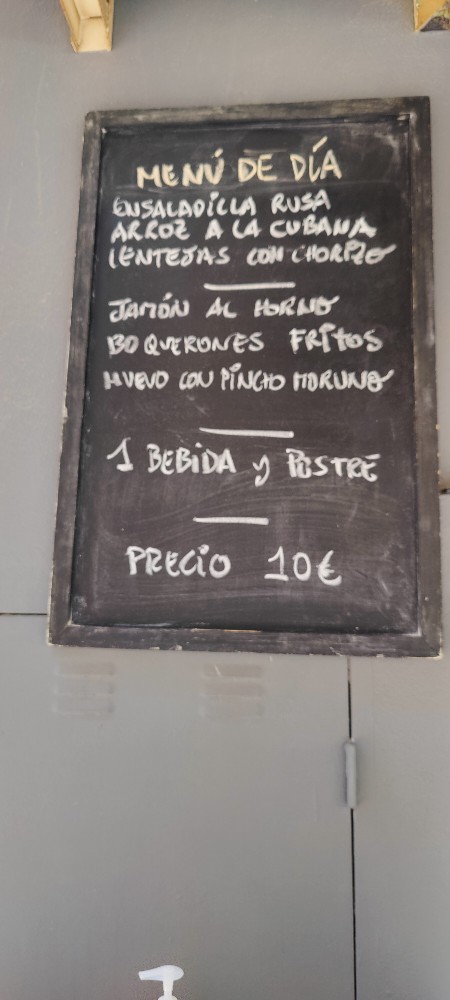 MENÚ DE DÍA
ENSALADILLA RUSA
ARROZ A LA CUBANA
LENTEJAS CON CHORIZO
JAMÓN AL HORNO
BOQUERONES FRITOS
HUEVO CON PINCHO MORUNO
1 BEBIDA y POSTRE
PRECIO 10€